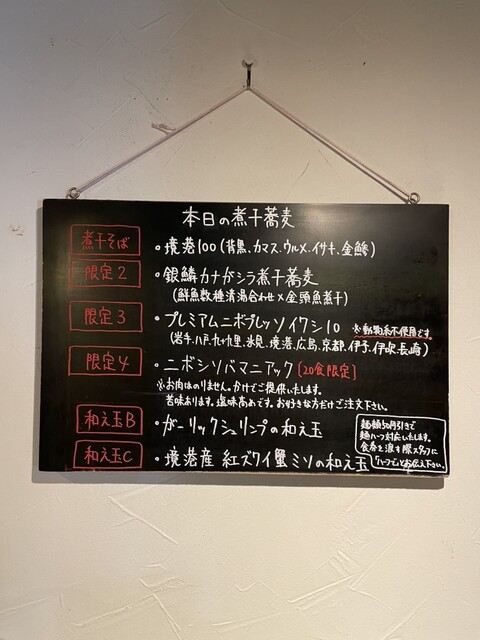 本日の煮干蕎麦
煮干そば ・境港100(背黒、カマス、ウルメ、イサキ、金鯵)
限定2 ・銀鱗カナガシラ煮干蕎麦
(鮮魚数種清湯合わせ×金頭魚煮干)
限定3 ・プレミアムニボプレッソイワシ10 ※動物系不使用です。
(岩手、八戸、九十九里、氷見、境港、広島、京都、伊予、伊吹、長崎)
限定4 ・ニボシソバマニアック【20食限定】
※お肉はのりません。かけでご提供いたします。
苦味あります。塩味高めです。お好きな方だけご注文下さい。
和え玉B ・ガーリックシュリンプの和え玉
和え玉C ・境港産 紅ズワイ蟹ミソの和え玉
麺類50円引きで
麺ハーフ対応いたします。
食券を渡す際スタッフに
「ハーフで」とお伝え下さい。